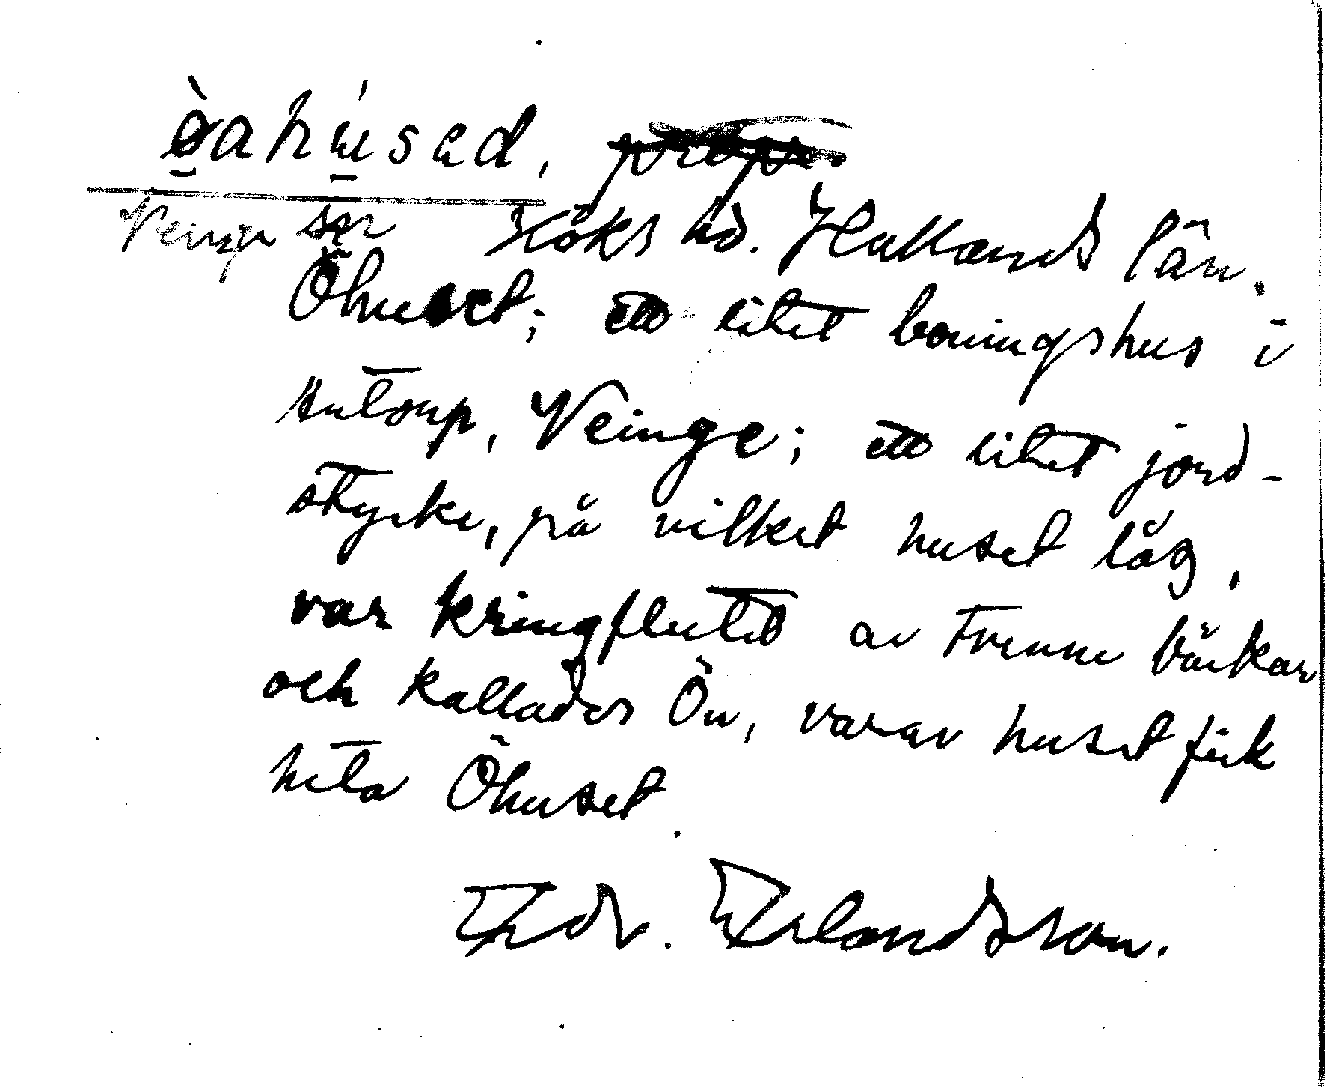 öahused, propr.
Veinge sn Höks hd. Hallands län.
Öhuset; ett litet boningshus i
Hutorp, Veinge; ett litet jord-
stycke, på vilket huset låg,
var kringflutet av trenne bäckar
och kallades Ön, varav huset fick
heta Öhuset.
Edv. Erlandsson.